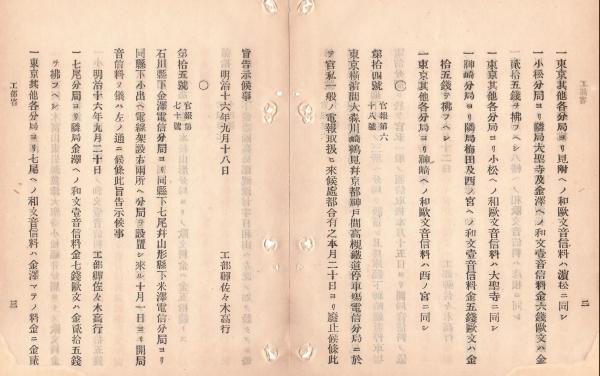 工部省
二
一東京其他各分局ヨリ見附ヘノ和歐文音信料ハ濵松ニ同シ
一小松分局ヨリ隣局大聖寺及金澤ヘノ和文壹音信料金六錢歐文ハ金
貳拾五錢ヲ拂フヘシ
一東京其他各分局ヨリ小松ヘノ和歐文音信料ハ大聖寺ニ同シ
一神崎分局ヨリ隣局梅田及西ノ宮ヘノ和文壹音信料金五錢歐文ハ金
拾五錢ヲ拂フヘシ
一東京其他各分局ヨリ神崎ヘノ和歐文音信料ハ西ノ宮ニ同シ
第拾四號 官報第六十八號
東京橫濵間大森川崎鶴見幷京都神戸間高槻鐵道停車塲電信分局ニ於
テ官私一般ノ電報取扱ヒ來候處都合有之本月二十日ヨリ廢止候條此
旨告示候事
明治十六年九月十八日 工部卿佐々木高行
第拾五號 官報第七十號
石川縣下金澤電信分局ヨリ同縣下七尾幷山形縣下米澤電信分局ヨリ
同縣下小出ヘ電線架設右兩所ヘ分局ヲ設置シ來ル十月一日ヨリ開局
音信料ノ儀ハ左ノ通ニ候條此旨告示候事
明治十六年九月二十日 工部卿佐々木高行
一七尾分局ヨリ隣局金澤ヘノ和文壹音信料金七錢歐文ハ金貳拾五錢
ヲ拂フヘシ
一東京其他各分局ヨリ七尾ヘノ和文音信料ハ金澤マテノ料金ニ金貳
工部省
三